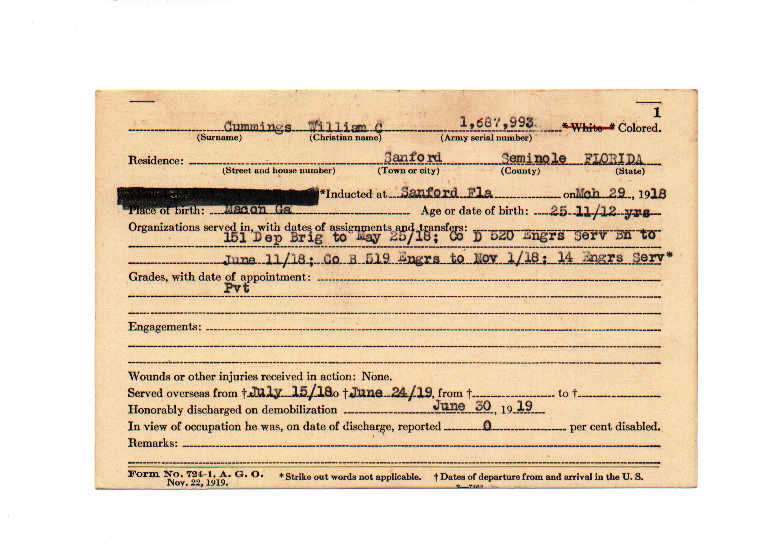 1
Cummings William C 1,687,993 *White *Colored.
(Surname) (Christian name) (Army serial number)
Residence: Sanford Seminole FLORIDA
(Street and house number) (Town or city) (County) (State)
*Inducted at Sanford Fla on Mch 29, 1918
Place of birth: Macon Ga Age or date of birth: 25 11/12 yrs
Organizations served in, with dates of assignments and transfers:
151 Dep Brig to May 25/18; Co D 520 Engrs Serv Bn to
June 11/18; Co B 519 Engrs to Nov 1/18; 14 Engrs Serv*
Grades, with date of appointment:
Pvt
Engagements:
Wounds or other injuries received in action: None.
Served overseas from † July 15/18 to † June 24/19, from † to †
Honorably discharged on demobilization June 30, 19 19
In view of occupation he was, on date of discharge, reported 0 per cent disabled.
Remarks:
Form No. 724-1, A. G. O. *Strike out words not applicable. †Dates of departure from and arrival in the U. S.
Nov. 22, 1919.